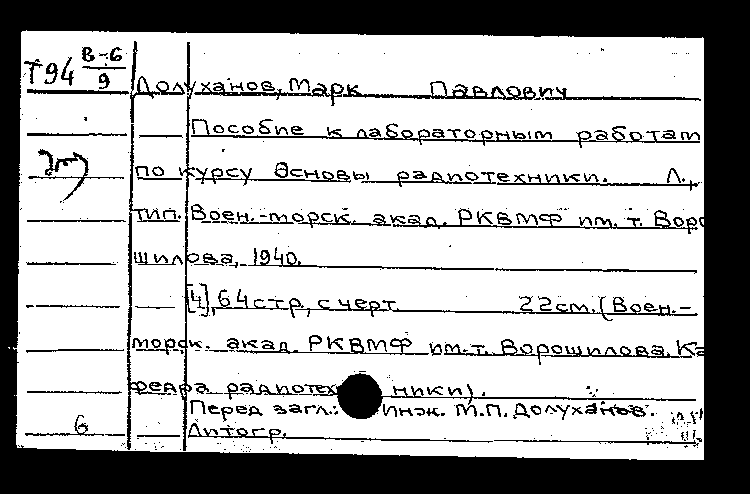 Т94 В-6
9
Долуханов, Марк Павлович
Пособие к лабораторным работам
по курсу Основы радиотехники. Л.,
тип. Воен.-морск. акад. РКВМФ им. т. Воро
шилова, 1940.
[4], 64 стр, с черт. 22 см. (Воен.-
морск. акад. РКВМФ им. т. Ворошилова. Ка
федра радиотехники).
Перед загл.: Инж. М.П. Долуханов.
6 Литогр.